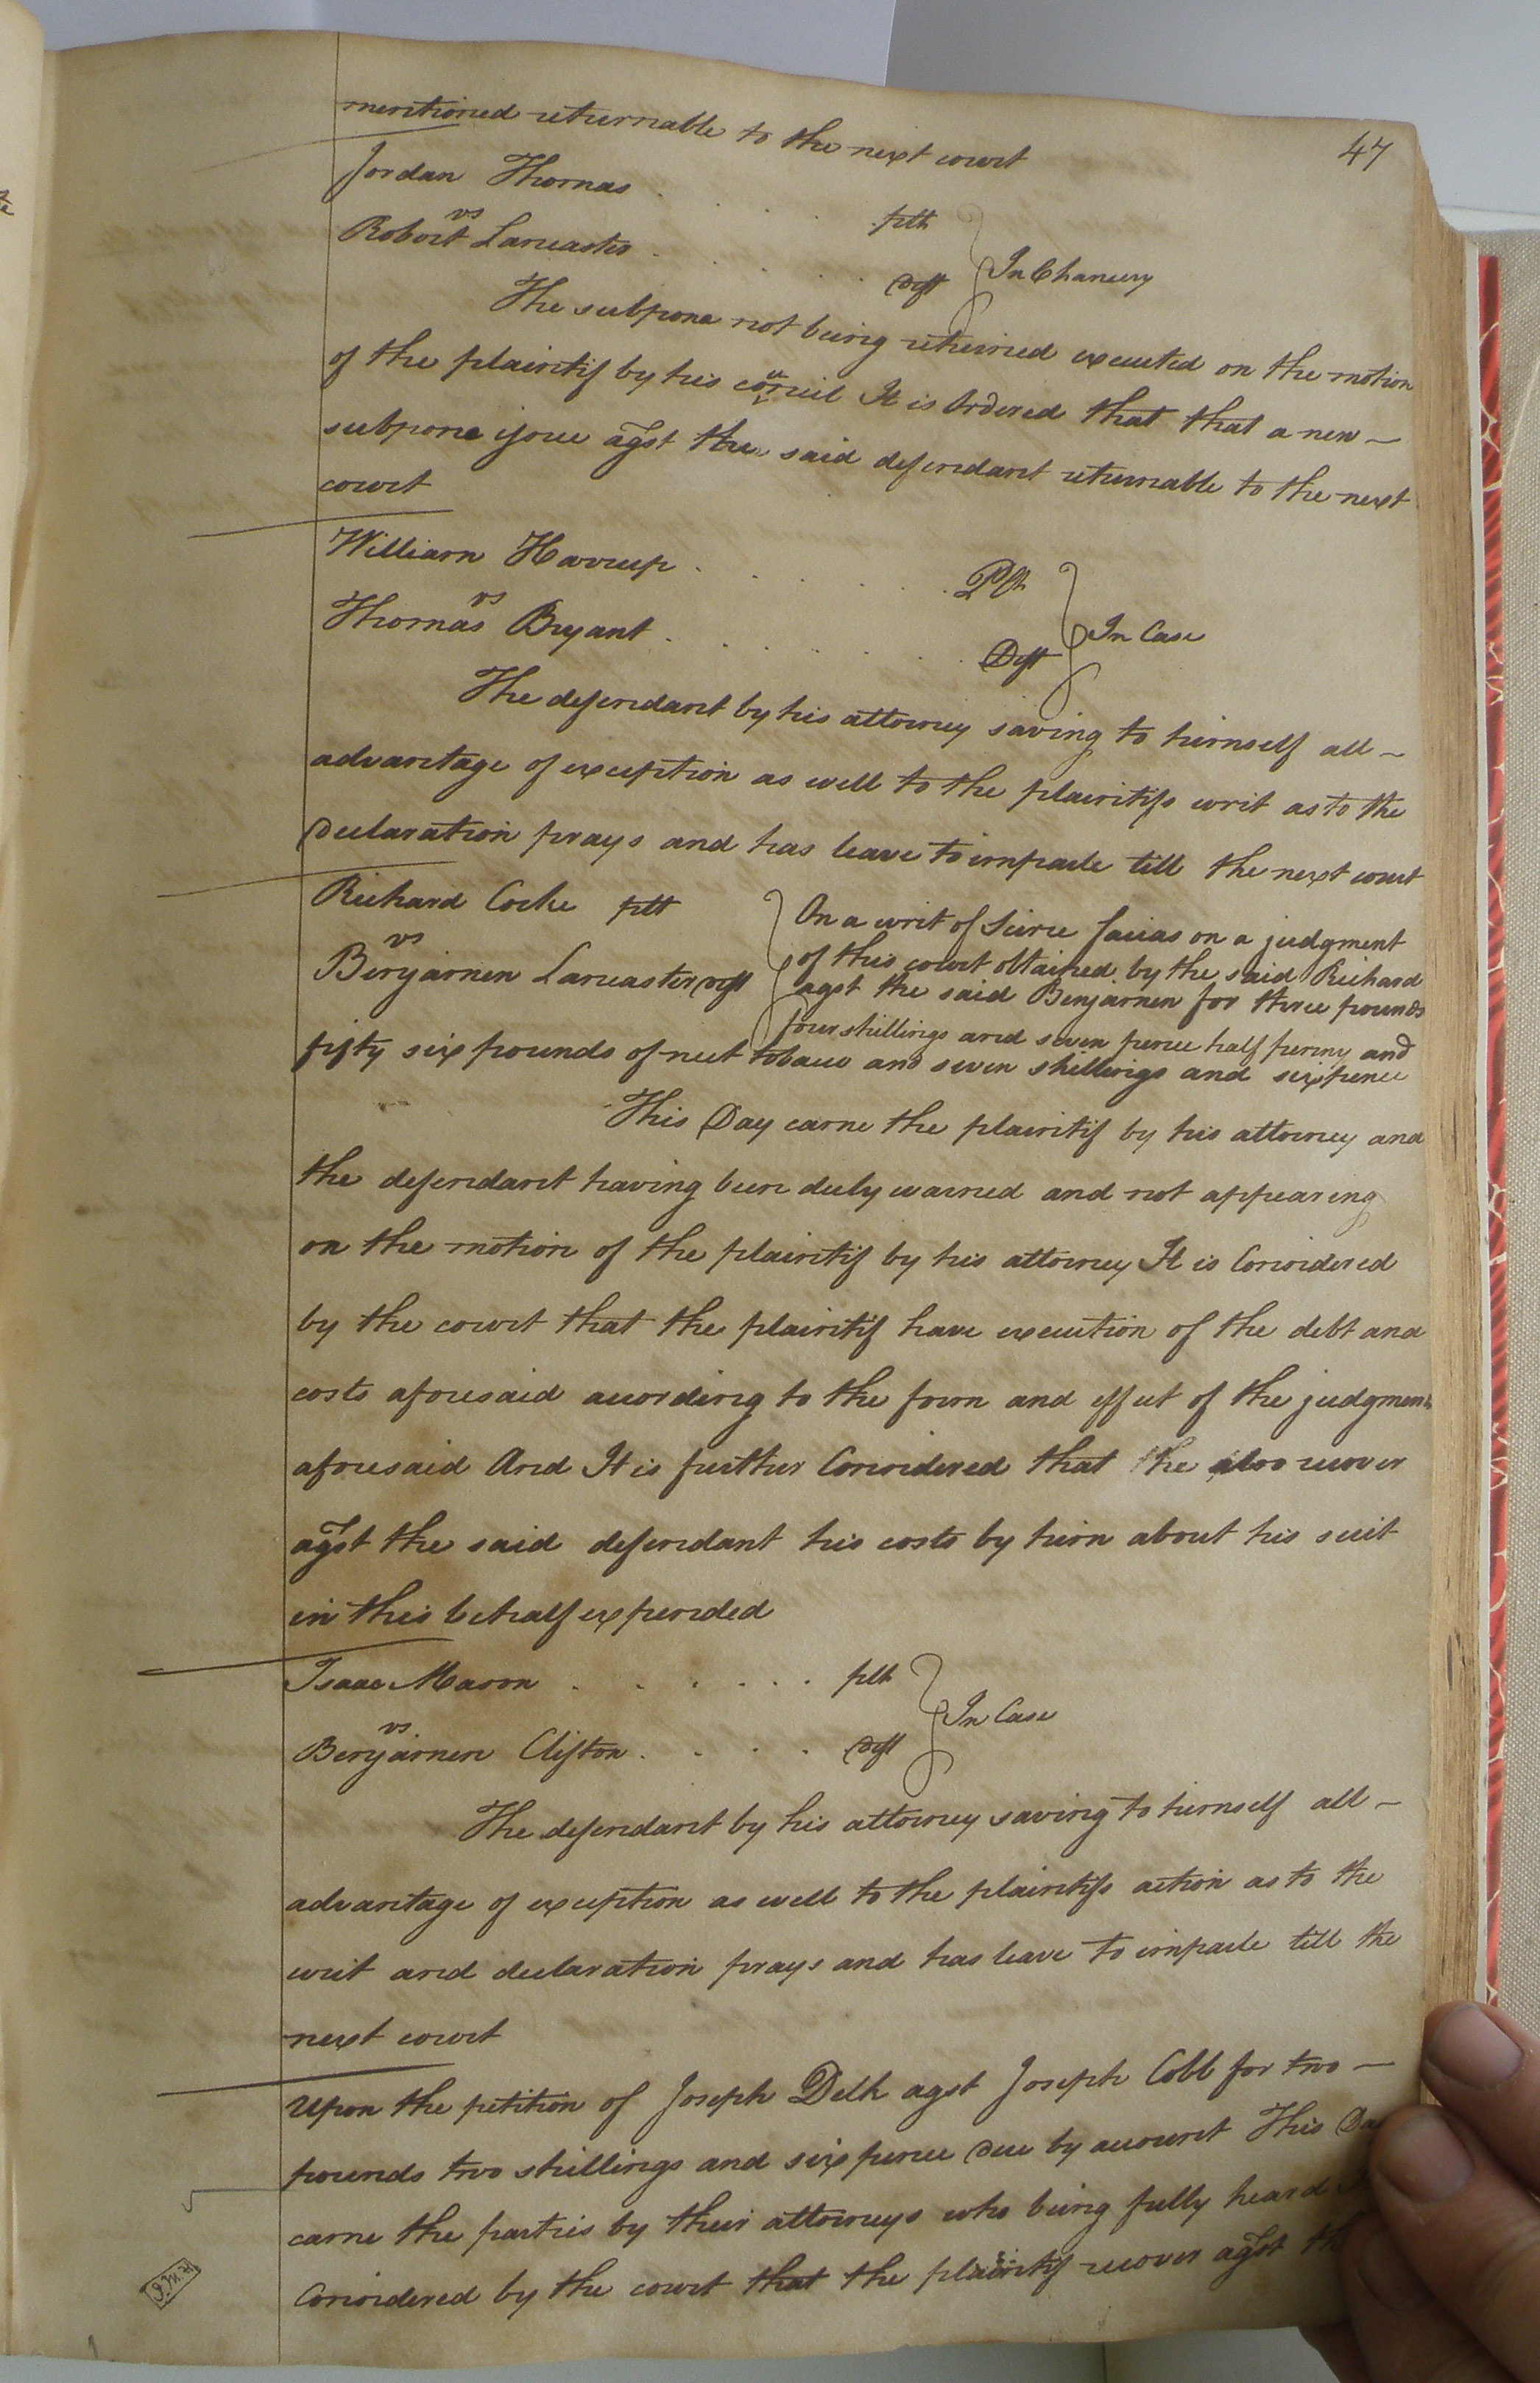 47
mentioned returnable to the next court
Jordan Thomas . . . . plt
vs
Robert Lancaster . . . . Deft } In Chancery
The subpone not being returned executed on the motion
of the plaintif by his councel It is Ordered that that a new —
subpone issue agst the said defendant returnable to the next
court
William Harrup . . . . Plt
vs
Thomas Bryant . . . . Deft } In Case
The defendant by his attorney saving to himself all —
advantage of exception as well to the plaintifs writ as to the
Declaration prays and has leave to imparle till the next court
Richard Cocke plt
vs
Benjamen Lancaster Deft }
On a writ of Scire facias on a judgment
of this court obtained by the said Richard
agst the said Benjamen for three pounds
four shillings and seven pence half penny and
fifty six pounds of neet tobacco and seven shillings and sixpence
This Day came the plaintif by his attorney and
the defendant having been duly warned and not appearing
on the motion of the plaintif by his attorney It is Considered
by the court that the plaintif have execution of the debt and
costs aforesaid according to the form and effect of the judgment
aforesaid And It is further Considered that the also recover
agst the said defendant his costs by him about his suit
in this behalf expended
Isaac Mason . . . . . . plt
vs
Benjamen Clifton . . . . Deft } In Case
The defendant by his attorney saving to himself all —
advantage of exception as well to the plaintifs action as to the
writ and declaration prays and has leave to imparle till the
next court
Upon the petition of Joseph Delk agst Joseph Cobb for two —
pounds two shillings and six pence Due by account This
came the parties by their attorneys who being fully heard
Considered by the court that the plaintif recover agst